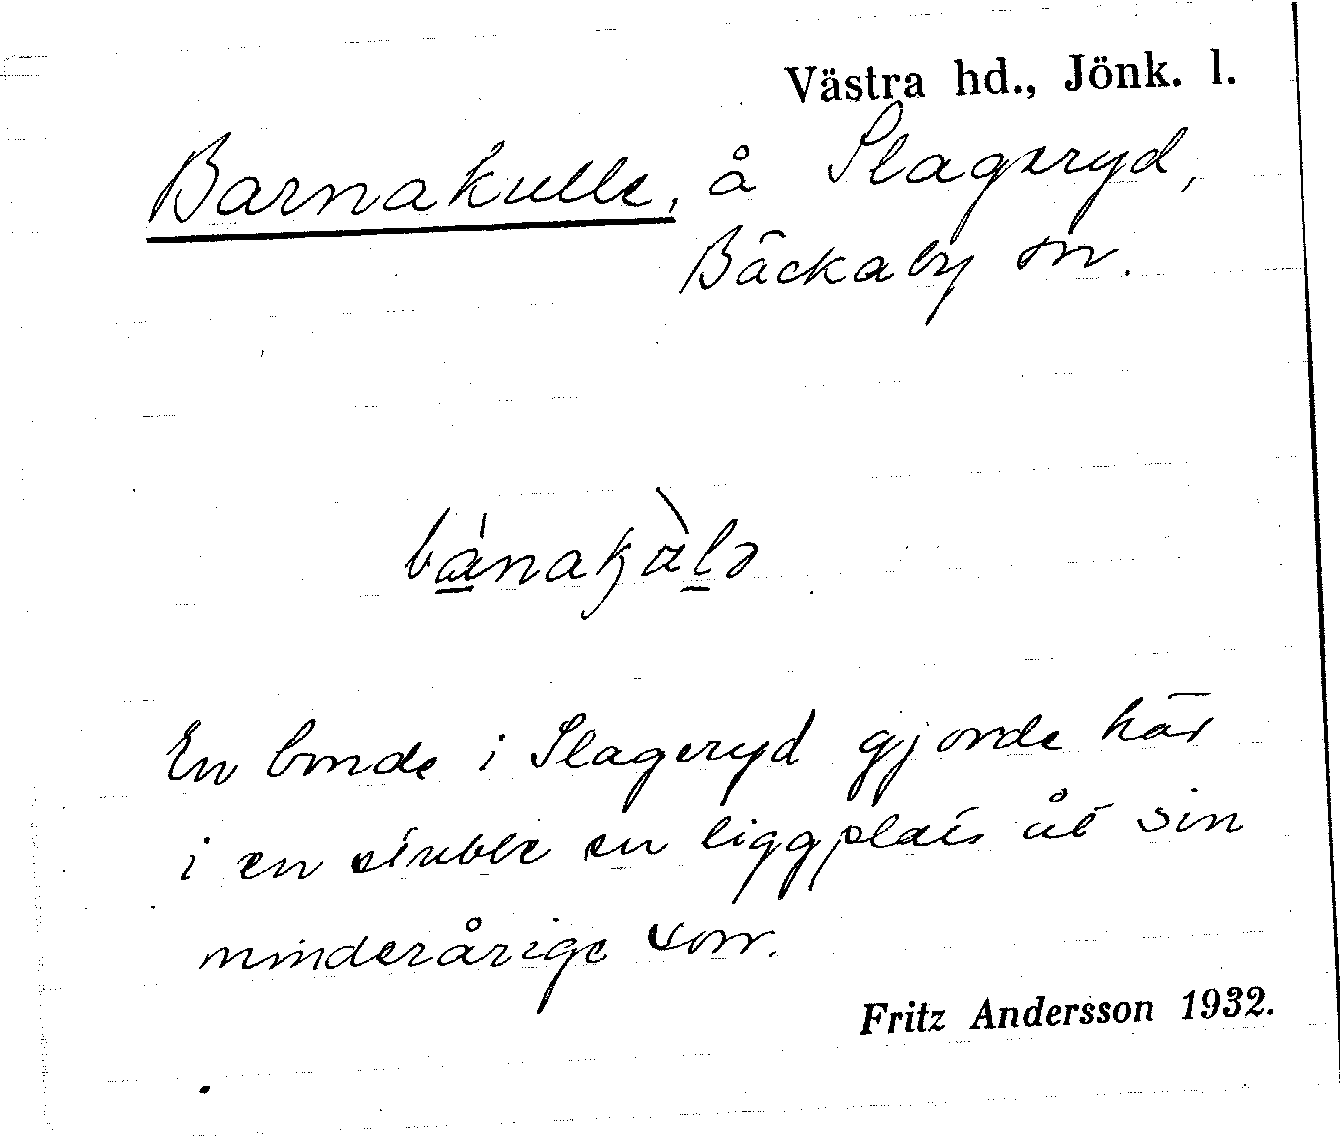 Västra hd., Jönk. l.
Barnakulle, å Slageryd,
Bäckaby sn.
En bonde i Slageryd gjorde här
i en stubbe en liggplats åt sin
minderårige son.
Fritz Andersson 1932.